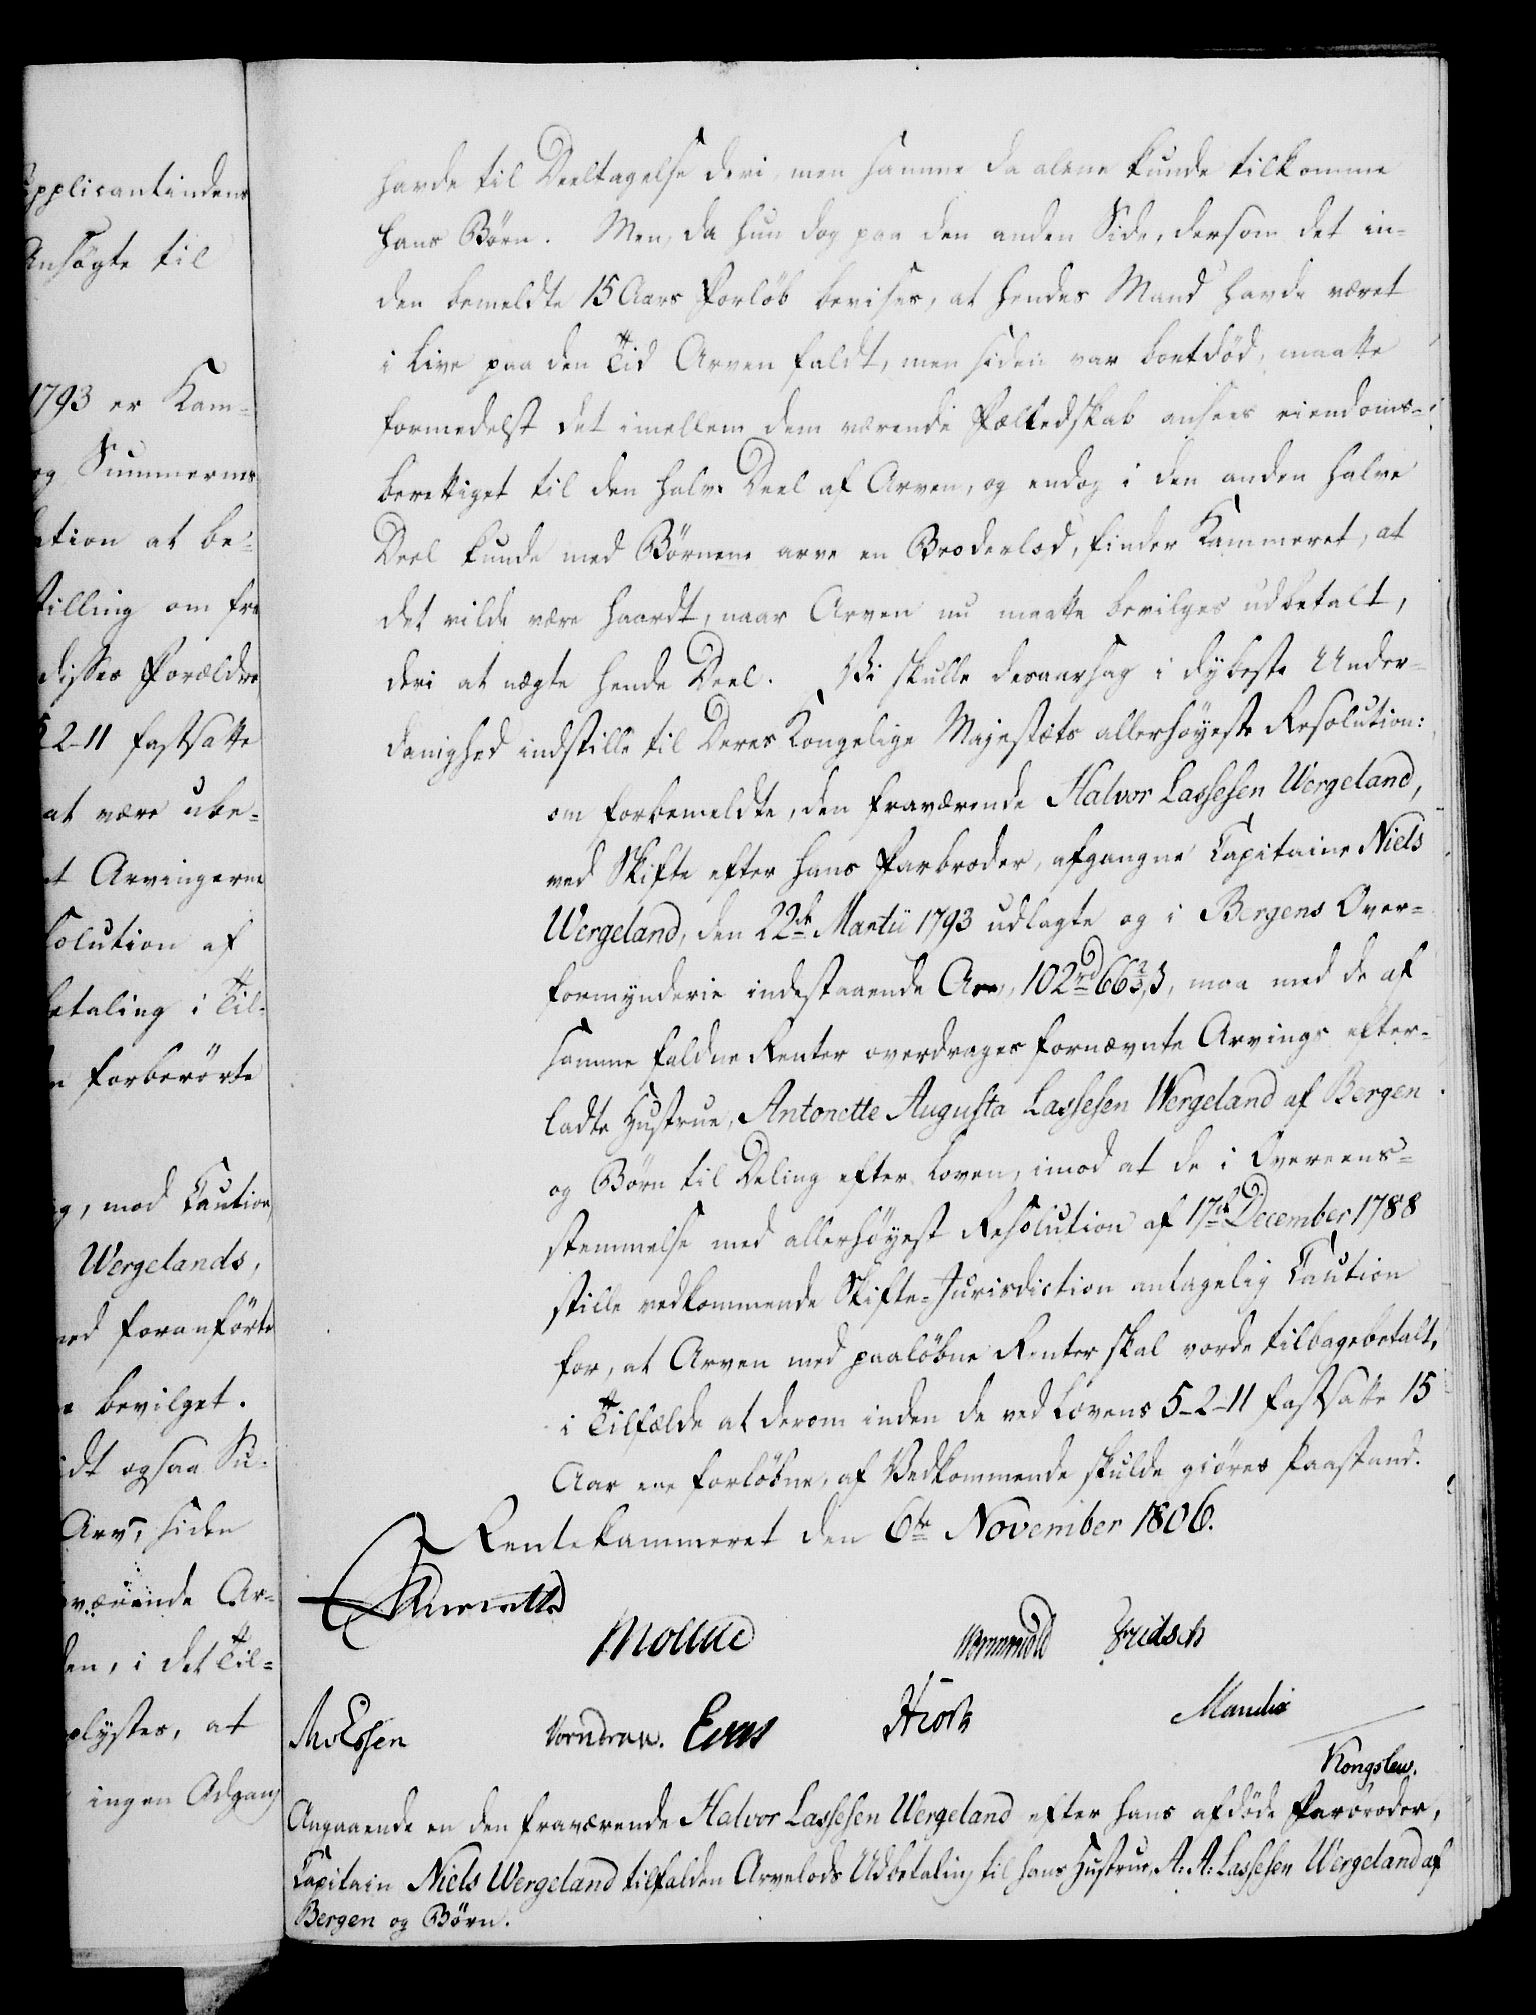 pplicantindens
Ansøgte til
1793 er Kam-
og Summernes
ation at be-
stilling om fra
disses Forældre
5-2-11 fastsatte
at være ube-
t Arvingerne
solution af
betaling i Til-
forberørte
g, mod Caution,
Wergelands,
ed foranførte
bevilget.
idt ogsaa
Arv, siden
værende Ar-
en, i det Til-
plystes, at
ingen Adgang
havde til Deeltagelse deri, men samme da alene kunde tilkomme
hans Børn. Men, da hun dog paa den anden Side, dersom det in-
den bemeldte 15 Aars Forløb bevises, at hendes Mand havde været
i Live paa den Tid Arven faldt, men siden var bortdød, maatte
formedelst det imellem dem værende Fælledskab ansees eiendoms-
berettiget til den halve Deel af Arven, og endog i den anden halve
Deel kunde med Børnene arve en Broderlod, finder Kammeret, at
det vilde være haardt, naar Arven nu maatte bevilges udbetalt,
deri at nægte hende Deel. Vi skulle desaarsag i dybeste Under-
danighed indstille til Deres Kongelige Majestæts allerhøyeste Resolution:
om forbemeldte, den fraværende Halvor Lassesen Wergeland,
ved Skifte efter hans Farbroder, afgangne Capitaine Niels
Wergeland, den 22de Martii 1793 udlagte og i Bergens Over-
formynderie indestaaende Arv, 102 rd 66 2/3 s, maa med de af
samme faldne Renter overdrages fornævnte Arvings efter-
ladte Hustrue, Antonette Augusta Lassesen Wergeland af Bergen
og Børn til Deling efter Loven, imod at de i Overeens-
stemmelse med allerhøyest Resolution af 17de December 1788
stille vedkommende Skifte-Jurisdiction antagelig Caution
for, at Arven med paaløbne Renter skal vorde tilbagebetalt,
i Tilfælde at derom inden de ved Lovens 5-2-11 fastsatte 15
Aar ere forløbne, af Vedkommende skulde giøres Paastand.
Rentekammeret den 6te November 1806.
Wormskiold Fridsch
Vorndran. Hiort Manthe
Kongslew.
Angaaende en den fraværende Halvor Lassesen Wergeland efter hans afdøde Farbroder,
Capitain Niels Wergeland tilfalden Arvelods Udbetaling til hans Hustrue, A: A: Lassesen Wergeland af
Bergen og Børn.